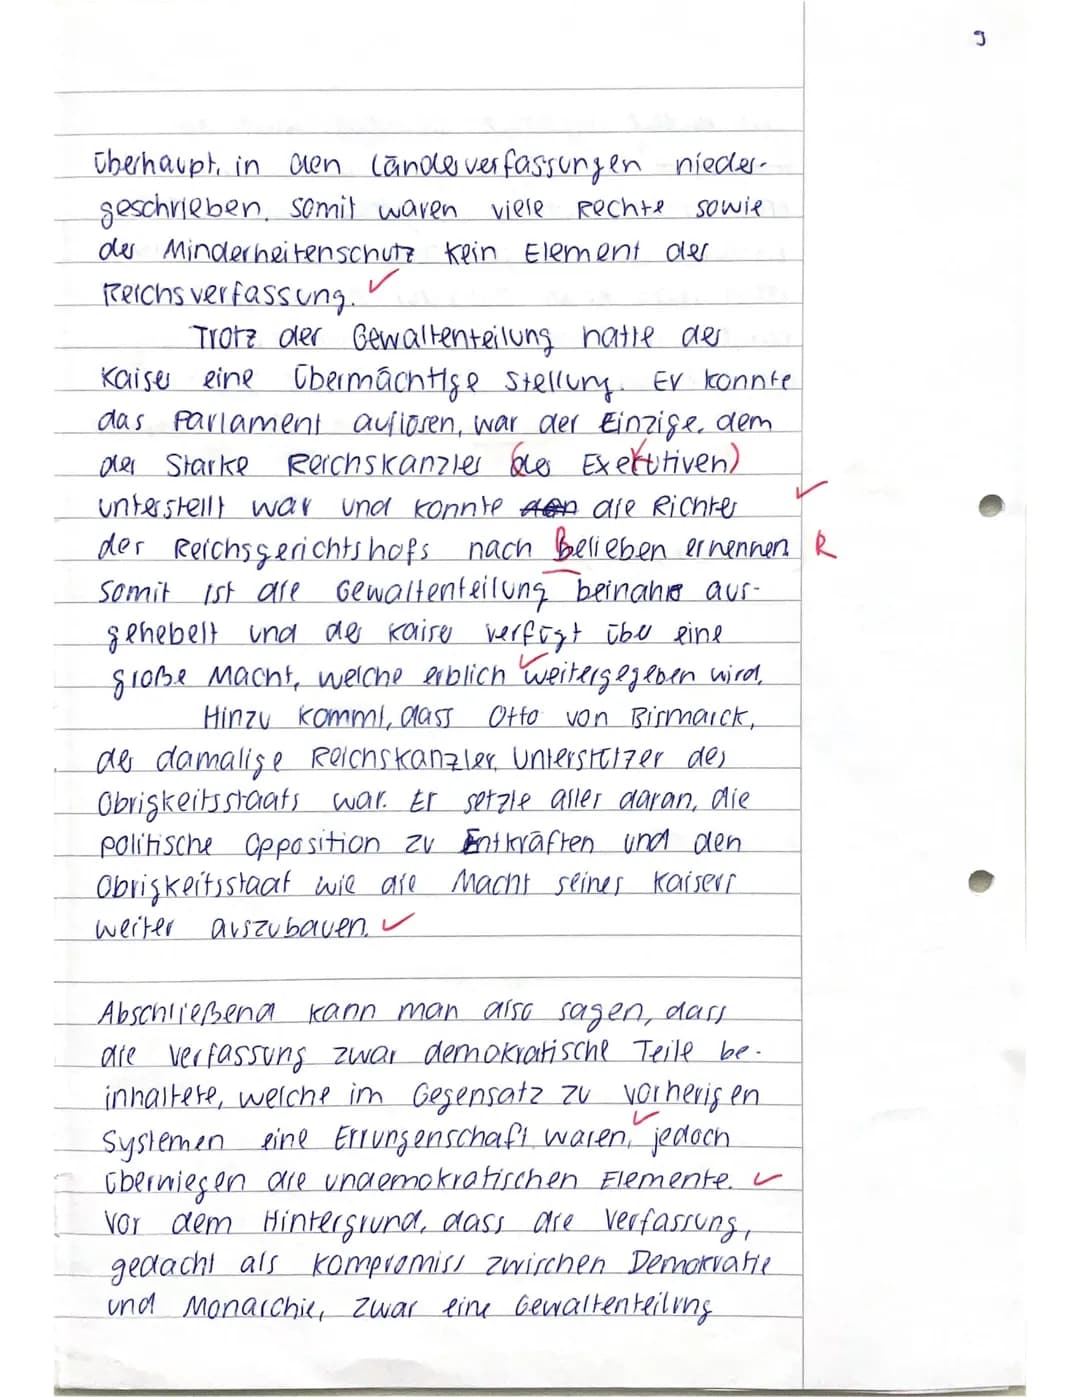 9
überhaupt, in den Länderverfassungen nieder-
geschrieben. Somit waren viele Rechte sowie
der Minderheitenschutz kein Element der
Reichsverfassung.
Trotz der Gewaltenteilung hatte der
Kaiser eine übermächtige Stellung. Er konnte
das Parlament auflösen, war der Einzige, dem
der starke Reichskanzler (der Exekutiven)
unterstellt war und konnte den die Richter
der Reichsgerichtshofs nach Belieben ernennen R
Somit ist die Gewaltenteilung beinahe aus-
gehebelt und der Kaiser verfügt über eine
große Macht, welche erblich weitergegeben wird.
Hinzu kommt, dass Otto von Bismarck,
der damalige Reichskanzler, Unterstützer des
Obrigkeitsstaats war. Er setzte alles daran, die
politische Opposition zu Entkräften und den
Obrigkeitsstaat wie die Macht seines Kaisers
weiter auszubauen.
Abschließend kann man also sagen, dass
die Verfassung zwar demokratische Teile be-
inhaltete, welche im Gegensatz zu vorherigen
Systemen eine Errungenschaft waren, jedoch
überwiegen die undemokratischen Elemente.
Vor dem Hintergrund, dass die Verfassung,
gedacht als Kompromiss zwischen Demokratie
und Monarchie, zwar eine Gewaltenteilung